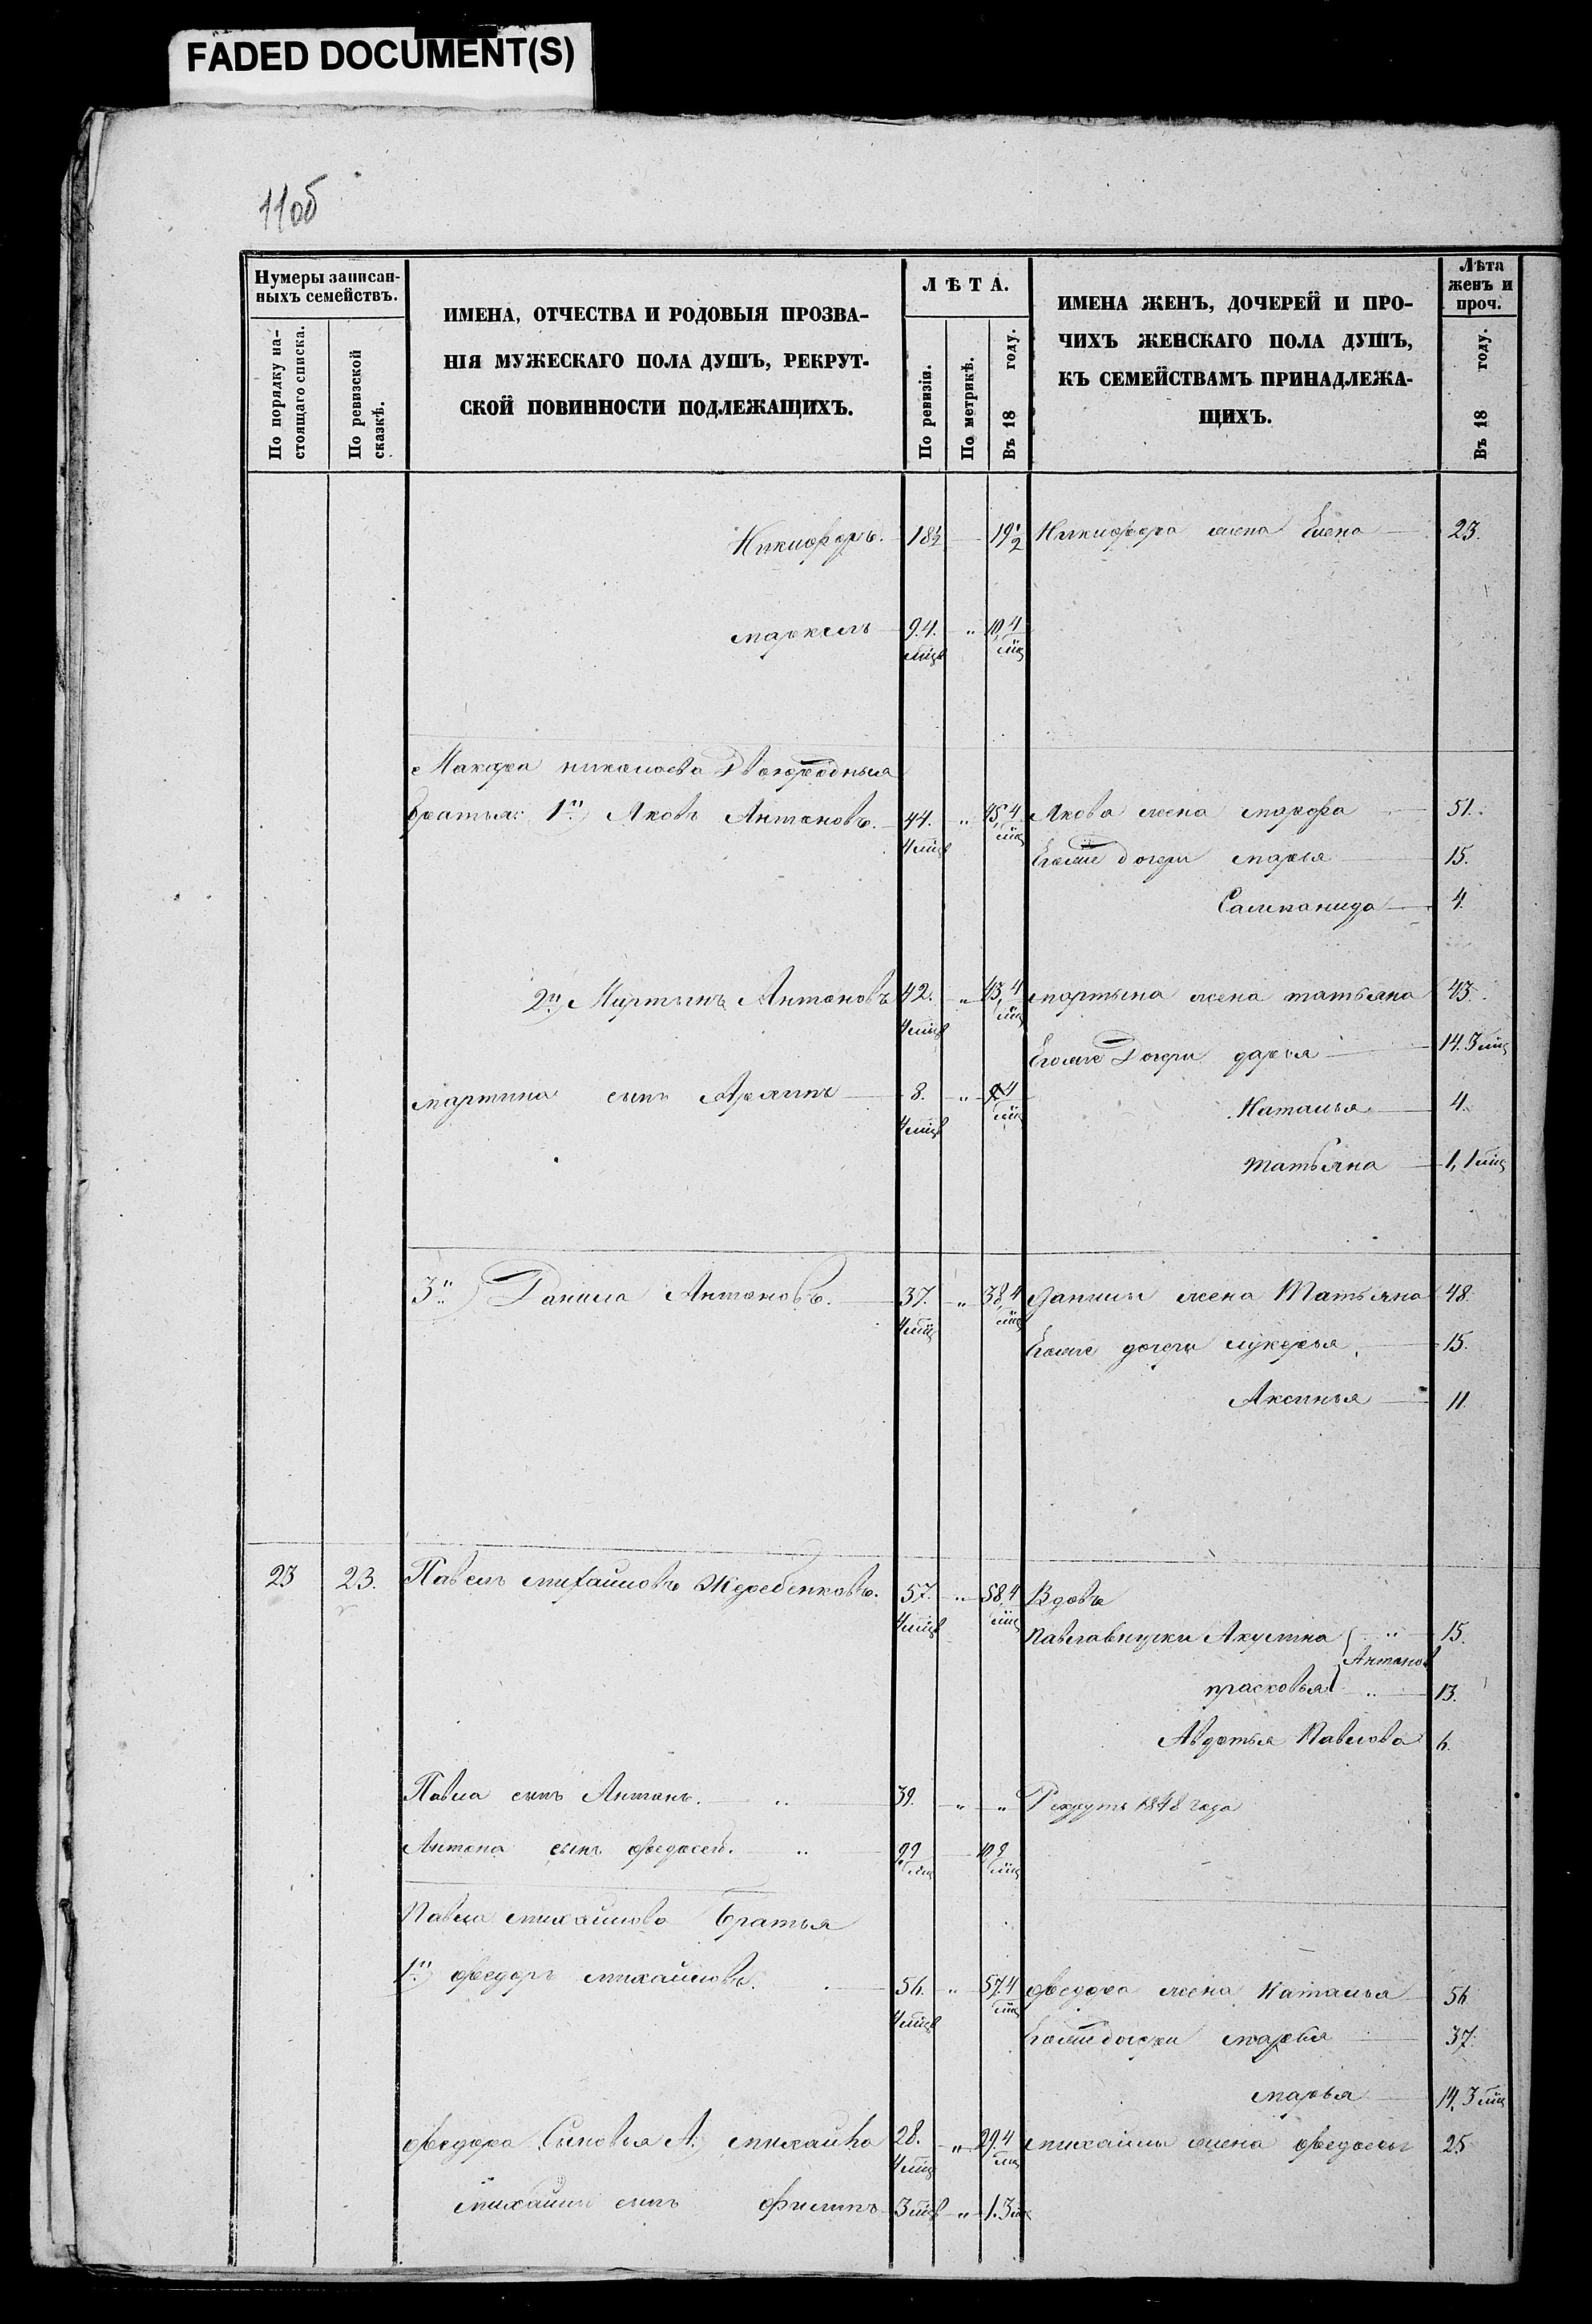 FADED DOCUMENT(S)
11об
Нумеры записан-
ныхъ семействъ.
По порядку на-
стоящаго списка.
По ревизской
сказкѣ.
ИМЕНА, ОТЧЕСТВА И РОДОВЫЯ ПРОЗВА-
НІЯ МУЖЕСКАГО ПОЛА ДУШЪ, РЕКРУТ-
СКОЙ ПОВИННОСТИ ПОДЛЕЖАЩИХЪ.
ЛѢТА.
По ревизіи.
По метрикѣ.
Въ 18 году.
ИМЕНА ЖЕНЪ, ДОЧЕРЕЙ И ПРО-
ЧИХЪ ЖЕНСКАГО ПОЛА ДУШЪ,
КЪ СЕМЕЙСТВАМЪ ПРИНАДЛЕЖА-
ЩИХЪ.
Лѣта
женъ и
проч.
Въ 18 году.
Никифоръ. 18½ 19½ Никифора жена Елена 23.
маркелъ 9.4. „ 10,4
мцв мц
Макара николаева Двоюродныя
братья: 1й) Яковъ Антоновъ. 44. „ 45,4 Якова жена марфа 51.
4мцв мц
Егоже дочери марья 15.
4.
2й) Мартынъ Антоновъ 42. „ 43,4 мартына жена татьяна 43.
4мцв мц
Егоже Дочери дарья 14.3мц
мартина сынъ 8. „ 9,4 Наталья 4.
4мцв мц
татьяна 1,1мц
3й) Данила Антоновъ. 37. „ 38,4 Данилы жена Татьяна 48.
4мц мц
Егоже дочери лукерья 15.
Аксинья 11.
23 23. Павелъ михайловъ Жеребенковъ. 57. „ 58,4 Вдовъ
4мцв мц
Павла внучки Акулина „ 15.
Антонов
прасковья „ 13.
Авдотья Павлова 6.
Павла сынъ Антонъ. „ 39. „ „ Рекрутъ 1848 года
Антона сынъ федосей. „ 9,9 10,9
мц мц
Павла михайлова Братья
1й) федоръ михайловъ. 56. „ 57.4 федора жена Наталья 56
4мцв мц
Егоже дочери марья 37.
марья 14,3мц
федора Сыновья А.) михайла 28. „ 29.4 михайлы жена федосья 25
4мц мц
михайлы сынъ филипъ 3мцв „ 1.3м